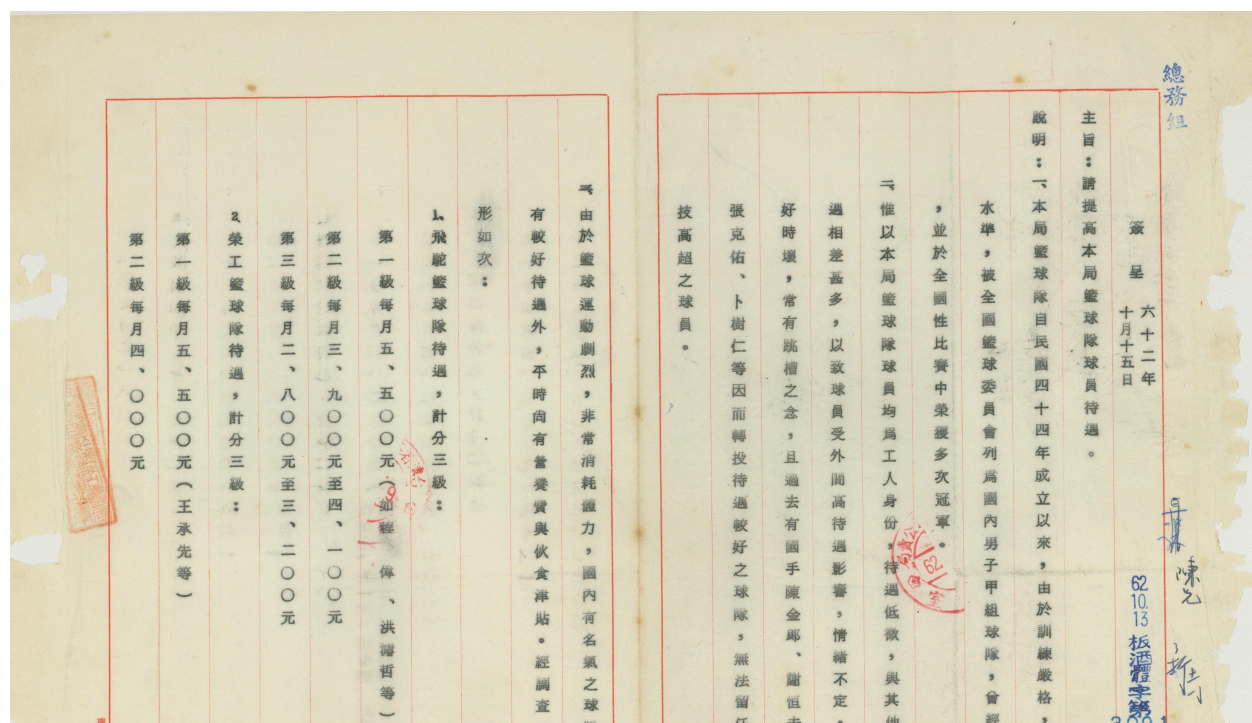 總務組
簽呈
六十二年
十月十五日
主旨：請提高本局籃球隊球員待遇。
說明：一、本局籃球隊自民國四十四年成立以來，由於訓練嚴格，
水準，被全國籃球委員會列為國內男子甲組球隊，曾經
，並於全國性比賽中榮獲多次冠軍。
二、惟以本局籃球隊球員均為工人身份，待遇低微，與其他
遇相差甚多，以致球員受外間高待遇影響，情緒不定，
好時壞，常有跳槽之念，且過去有國手陳金郎、謝恒夫
張克佑、卜樹仁等因而轉投待遇較好之球隊，無法留任
技高超之球員。
三、由於籃球運動劇烈，非常消耗體力，國內有名氣之球
有較好待遇外，平時尚有營養費與伙食津貼。經調查
形如次：
1、飛駝籃球隊待遇，計分三級：
第一級每月五、五〇〇元（如程　偉、洪濬哲等）
第二級每月三、九〇〇元至四、一〇〇元
第三級每月二、八〇〇元至三、二〇〇元
2、榮工籃球隊待遇，計分三級：
第一級每月五、五〇〇元（王承先等）
第二級每月四、〇〇〇元
62.10.13
板酒體字第